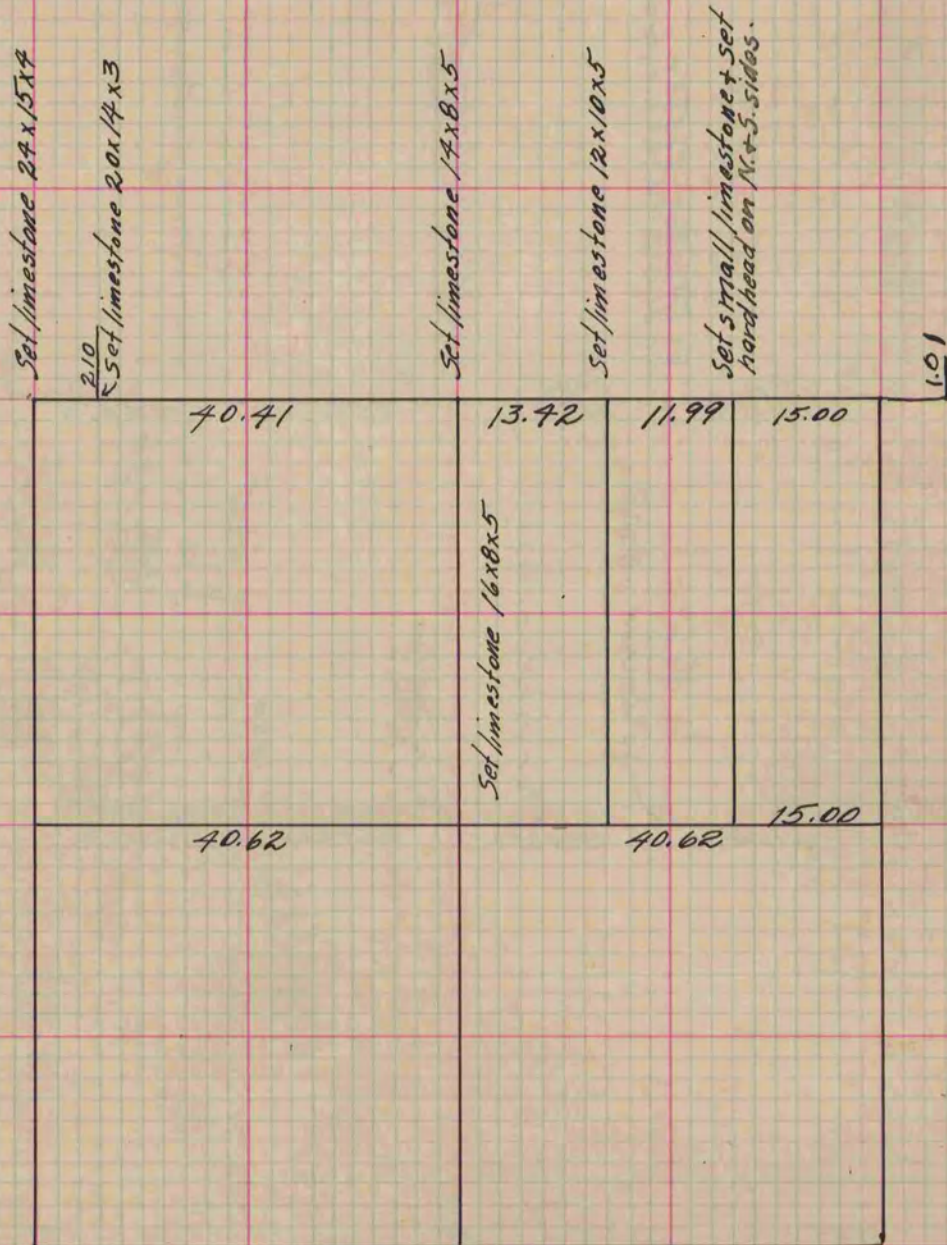 Set limestone 24x15x4
210
Set limestone 20x14x3
Set limestone 14x8x5
Set limestone 12x10x5
Set small limestone & set
hard head on N. & S. sides.
1.01
40.41
13.42
11.99
15.00
Set limestone 16x8x5
40.62
40.62
15.00